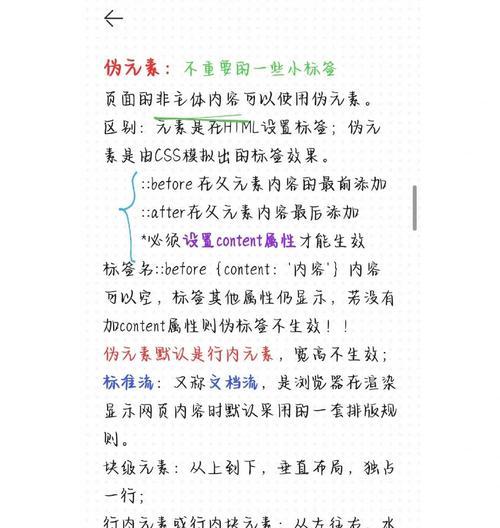 伪元素：不重要的一些小标签
页面的非主体内容可以使用伪元素。
区别：元素是在HTML设置标签；伪元
素是由CSS模拟出的标签效果。
::before在父元素内容的最前添加
::after在父元素内容最后添加
*必须设置content属性才能生效
标签名::before{content：'内容'}内容
可以空，标签其他属性仍显示，若没有
加content属性则伪标签不生效！！
伪元素默认是行内元素，宽高不生效；
标准流：又称文档流，是浏览器在渲染
显示网页内容时默认采用的一套排版规
则。
块级元素：从上到下，垂直布局，独占
一行；
行内元素或行内块元素：从左往右，水